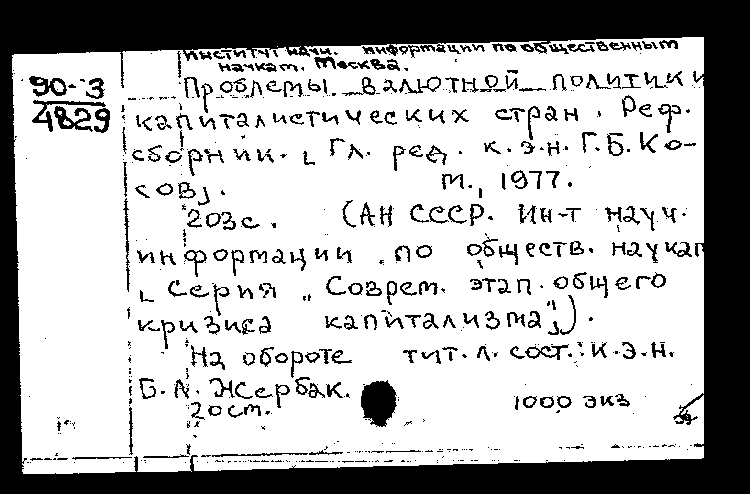 Институт научн. информации по общественным
наукам. Москва.
90-3
4829
Проблемы валютной политики
капиталистических стран. Реф.
сборник. [Гл. ред. к.э.н. Г.Б. Ко-
сов].
М., 1977.
203с. (АН СССР. Ин-т науч.
информации по обществ. наукам
[Серия „Соврем. этап общего
кризиса капитализма"]).
На обороте тит. л. сост.: к.э.н.
Б.Л. Жербак.
20 ст.
1000 экз